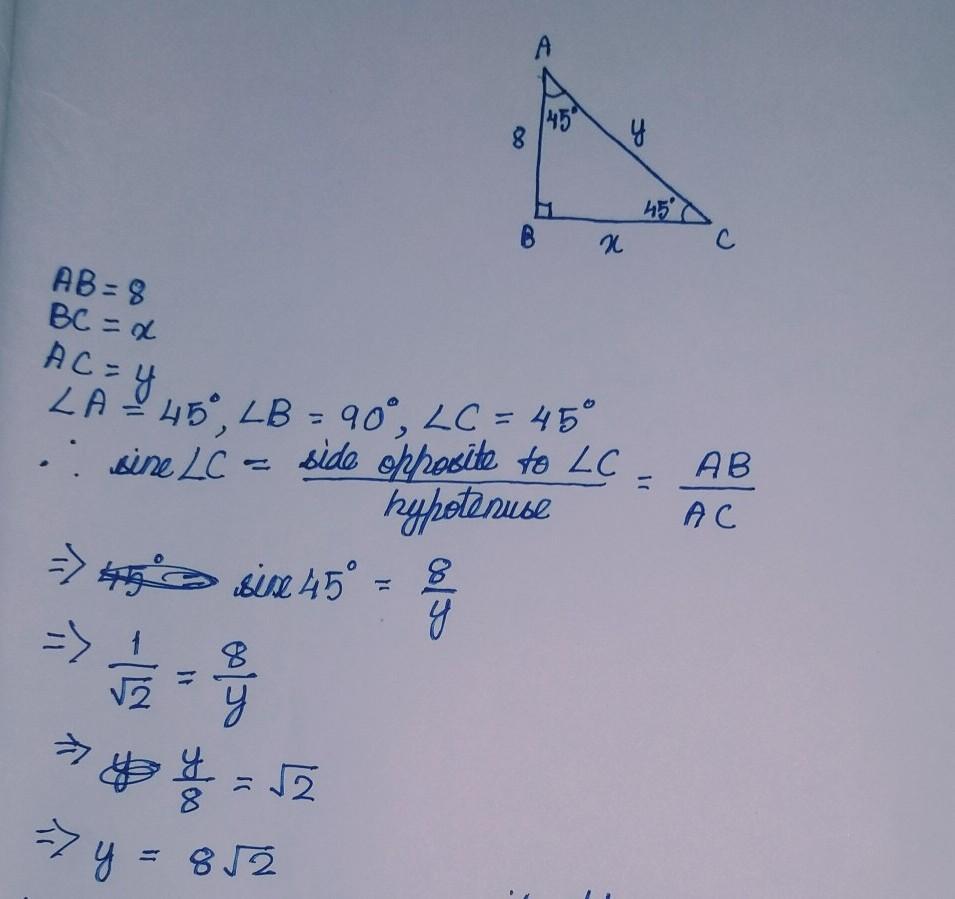 A
45°
8
y
45°
B
x
C
AB = 8
BC = x
AC = y
∠A = 45°, ∠B = 90°, ∠C = 45°
∴ sine ∠C = side opposite to ∠C / hypotenuse = AB / AC
=> sine 45° = 8/y
=> 1/√2 = 8/y
=> y/8 = √2
=> y = 8√2